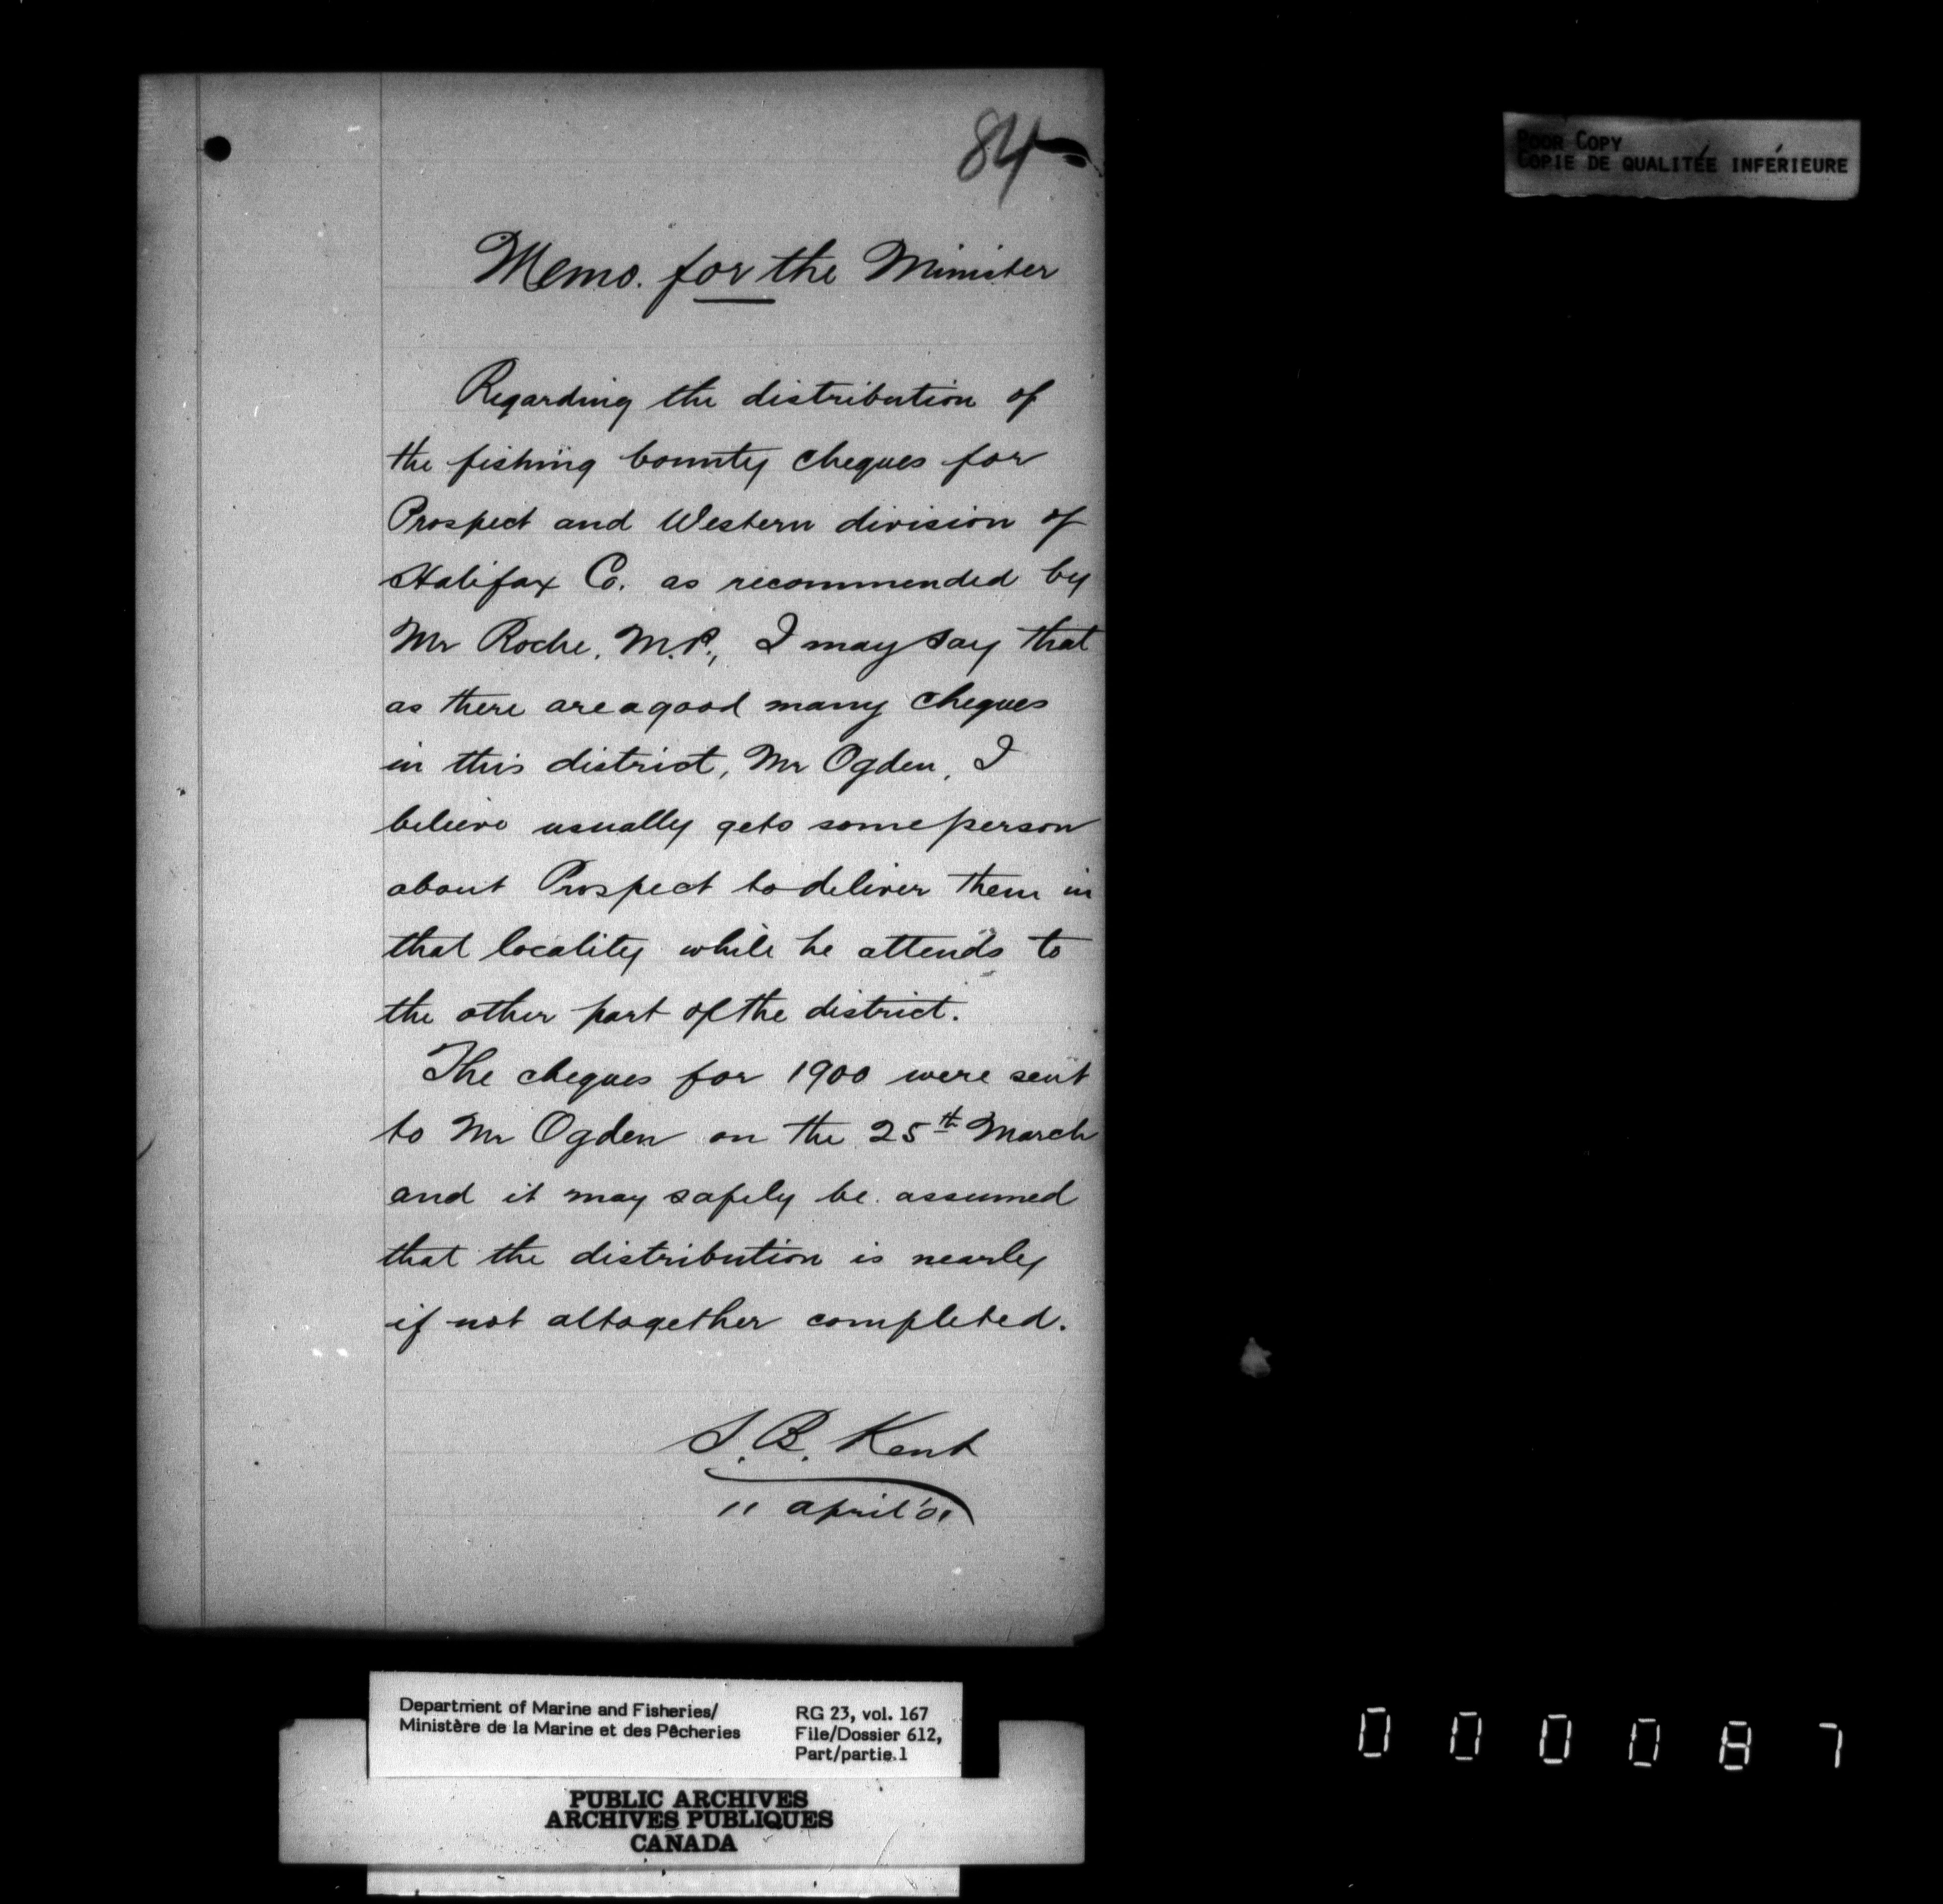 84
POOR COPY
COPIE DE QUALITÉE INFÉRIEURE
Memo. for the Minister
Regarding the distribution of
the fishing bounty cheques for
Prospect and Western division of
Halifax Co. as recommended by
Mr Roche, M.P., I may say that
as there are a good many cheques
in this district, Mr Ogden, I
believe usually gets some person
about Prospect to deliver them in
that locality while he attends to
the other part of the district.
The cheques for 1900 were sent
to Mr Ogden on the 25th March
and it may safely be assumed
that the distribution is nearly
if not altogether completed.
S. B. Kent
11 April '01
Department of Marine and Fisheries/
Ministère de la Marine et des Pêcheries
RG 23, vol. 167
File/Dossier 612,
Part/partie.1
PUBLIC ARCHIVES
ARCHIVES PUBLIQUES
CANADA
000087